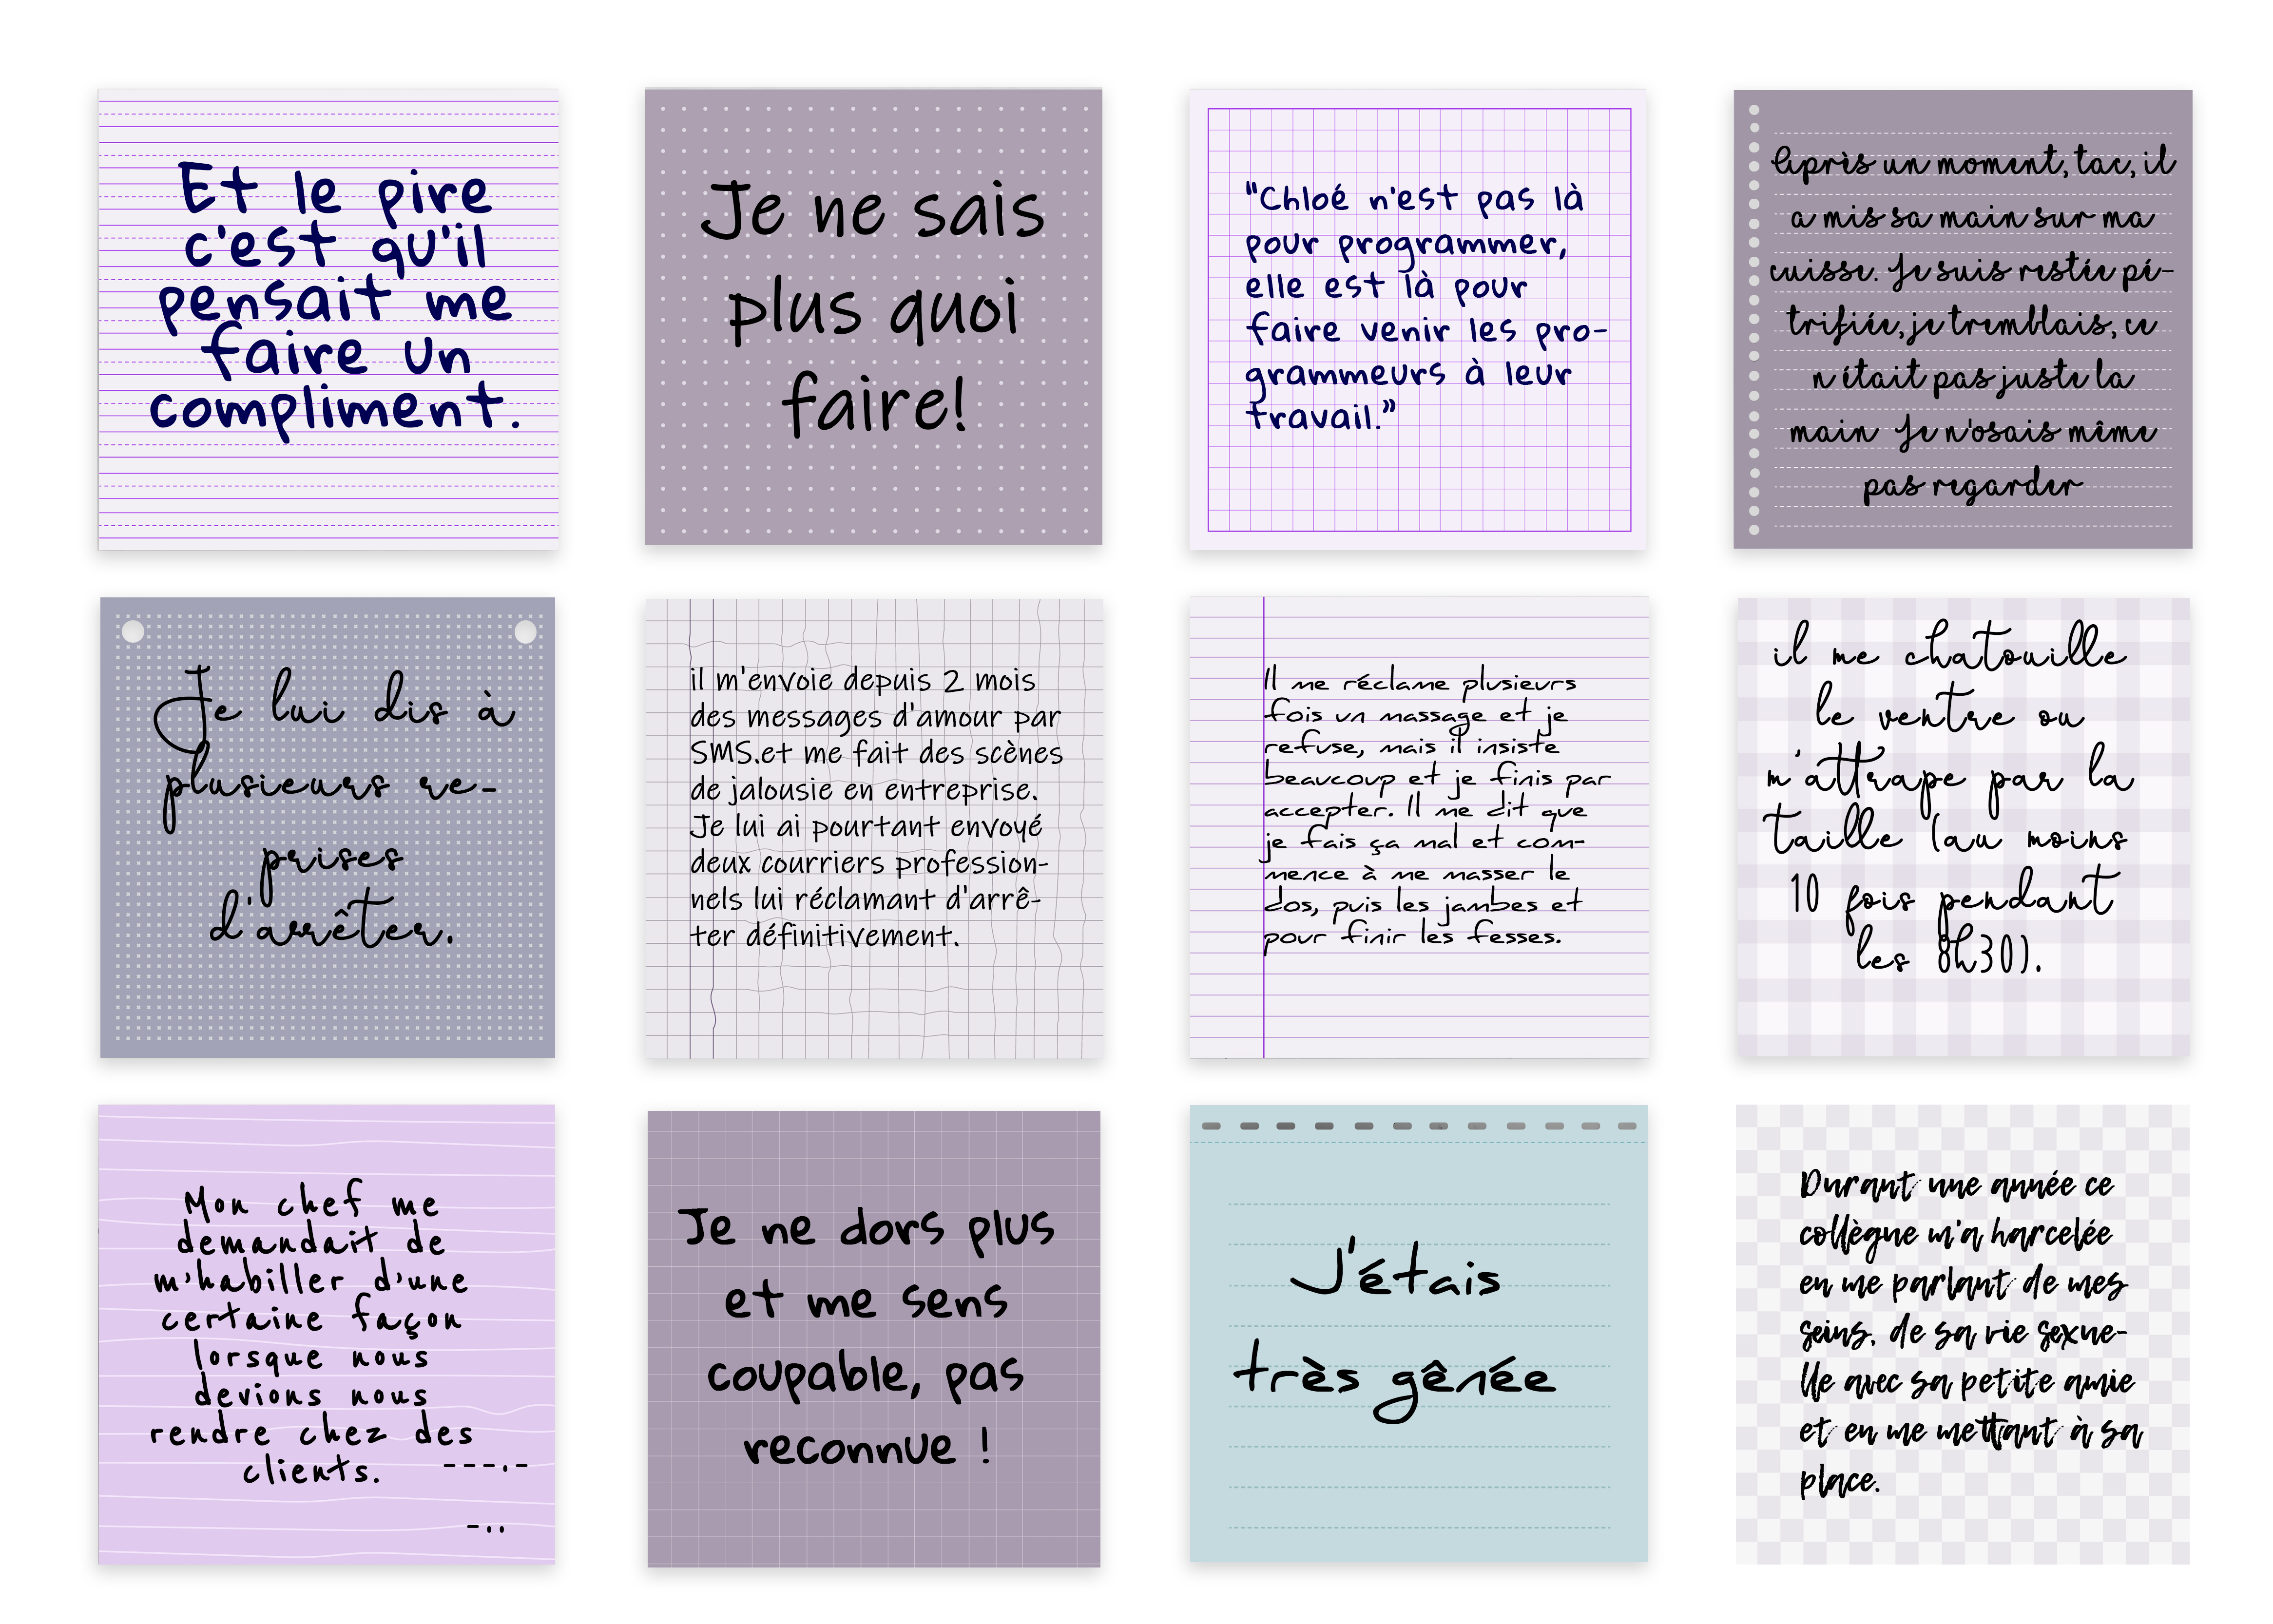 Et le pire
c'est qu'il
pensait me
faire un
compliment.
Je ne sais
plus quoi
faire!
"Chloé n'est pas là
pour programmer,
elle est là pour
faire venir les pro-
grammeurs à leur
travail."
Après un moment, tac, il
a mis sa main sur ma
cuisse. Je suis restée pé-
trifiée, je tremblais, ce
n était pas juste la
main Je n'osais même
pas regarder
Je lui dis à
plusieurs re-
prises
d'arrêter.
il m'envoie depuis 2 mois
des messages d'amour par
SMS.et me fait des scènes
de jalousie en entreprise.
Je lui ai pourtant envoyé
deux courriers profession-
nels lui réclamant d'arrê-
ter définitivement.
Il me réclame plusieurs
fois un massage et je
refuse, mais il insiste
beaucoup et je finis par
accepter. Il me dit que
je fais ça mal et com-
mence à me masser le
dos, puis les jambes et
pour finir les fesses.
il me chatouille
le ventre ou
m'attrape par la
taille (au moins
10 fois pendant
les 8h30).
Mon chef me
demandait de
m'habiller d'une
certaine façon
lorsque nous
devions nous
rendre chez des
clients. ---.-
-..
Je ne dors plus
et me sens
coupable, pas
reconnue !
J'étais
très gênée
Durant une année ce
collègue m'a harcelée
en me parlant de mes
seins, de sa vie sexue-
lle avec sa petite amie
et en me mettant à sa
place.